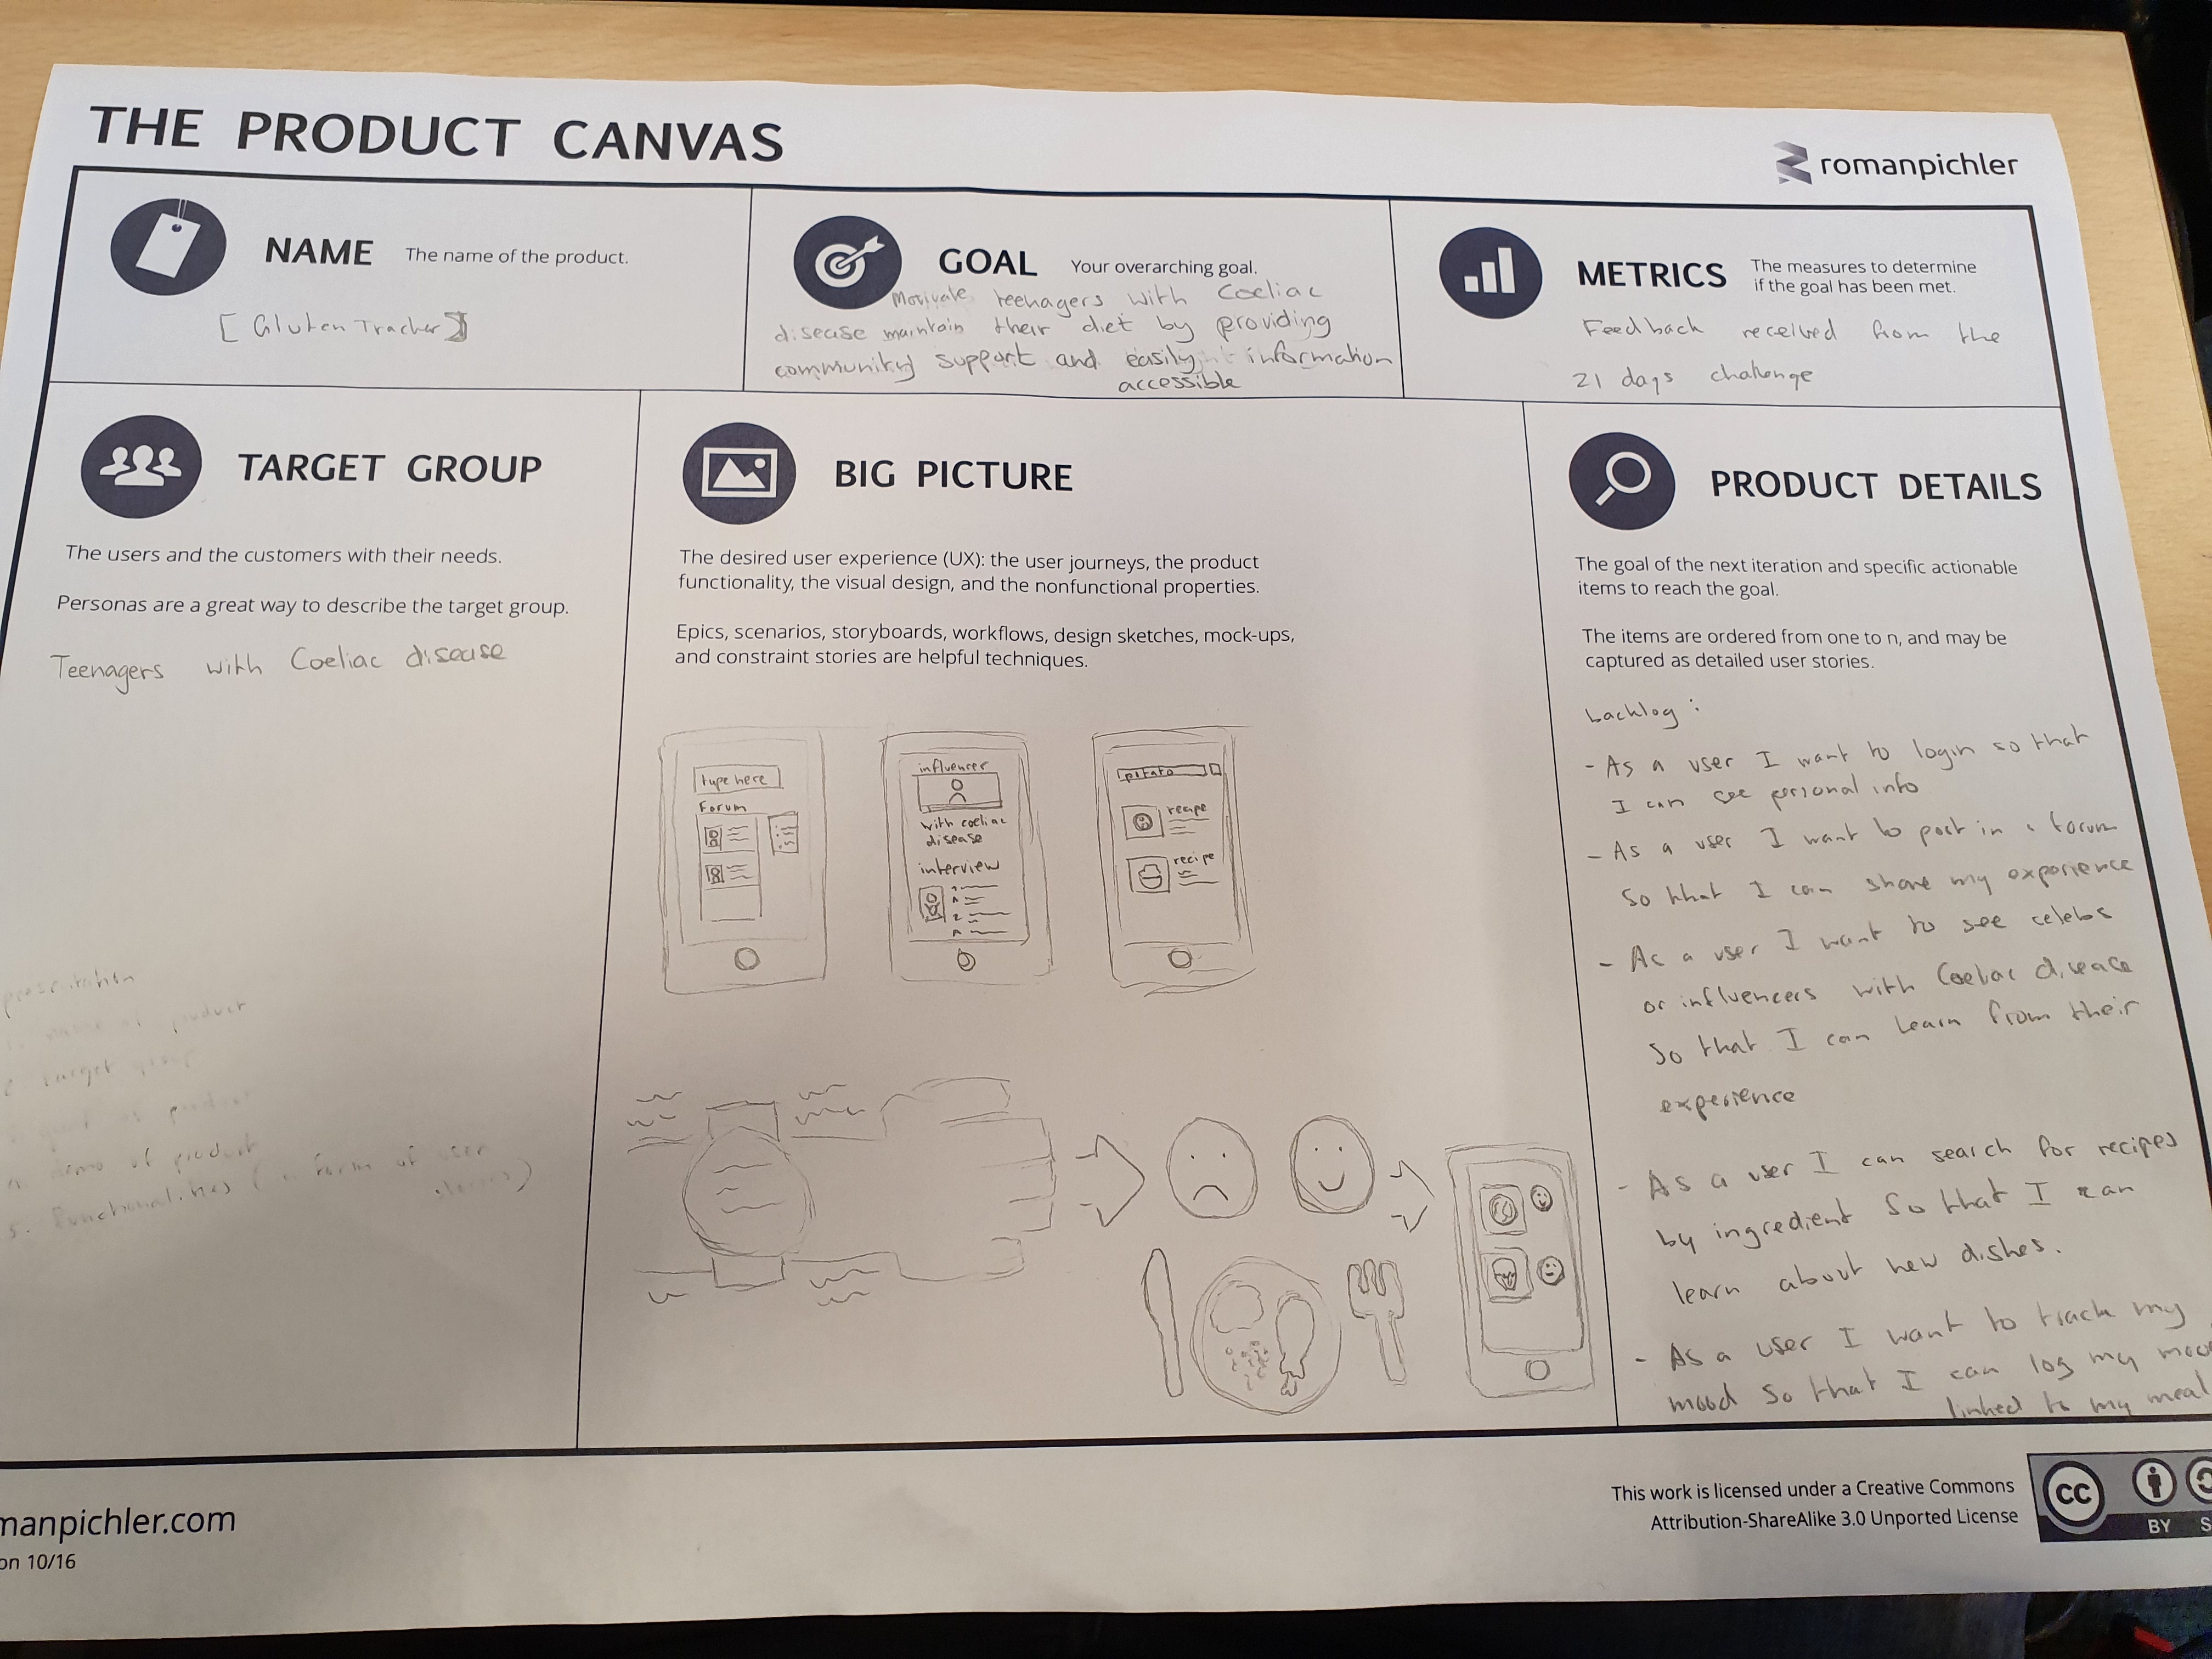 THE PRODUCT CANVAS
romanpichler
NAME The name of the product.
[Gluten Tracker]
GOAL Your overarching goal.
Motivate teenagers with Coeliac
disease maintain their diet by providing
community support and easily information
accessible
METRICS The measures to determine
if the goal has been met.
Feedback received from the
21 days challenge
TARGET GROUP
The users and the customers with their needs.
Personas are a great way to describe the target group.
Teenagers with Coeliac disease
presentation
name of product
2. target group
demo of product
5. Functionalities ( form of user
BIG PICTURE
The desired user experience (UX): the user journeys, the product
functionality, the visual design, and the nonfunctional properties.
Epics, scenarios, storyboards, workflows, design sketches, mock-ups,
and constraint stories are helpful techniques.
type here
Forum
influencer
with coeliac
disease
interview
potato
recipe
recipe
PRODUCT DETAILS
The goal of the next iteration and specific actionable
items to reach the goal.
The items are ordered from one to n, and may be
captured as detailed user stories.
backlog:
- As a user I want to login so that
I can see personal info
- As a user I want to post in a forum
so that I can share my experience
- As a user I want to see celebs
or influencers with Coeliac disease
so that I can learn from their
experience
- As a user I can search for recipes
by ingredient so that I can
learn about new dishes.
- As a user I want to track my
mood so that I can log my mood
linked to my meal
manpichler.com
on 10/16
This work is licensed under a Creative Commons
Attribution-ShareAlike 3.0 Unported License
CC
BY S